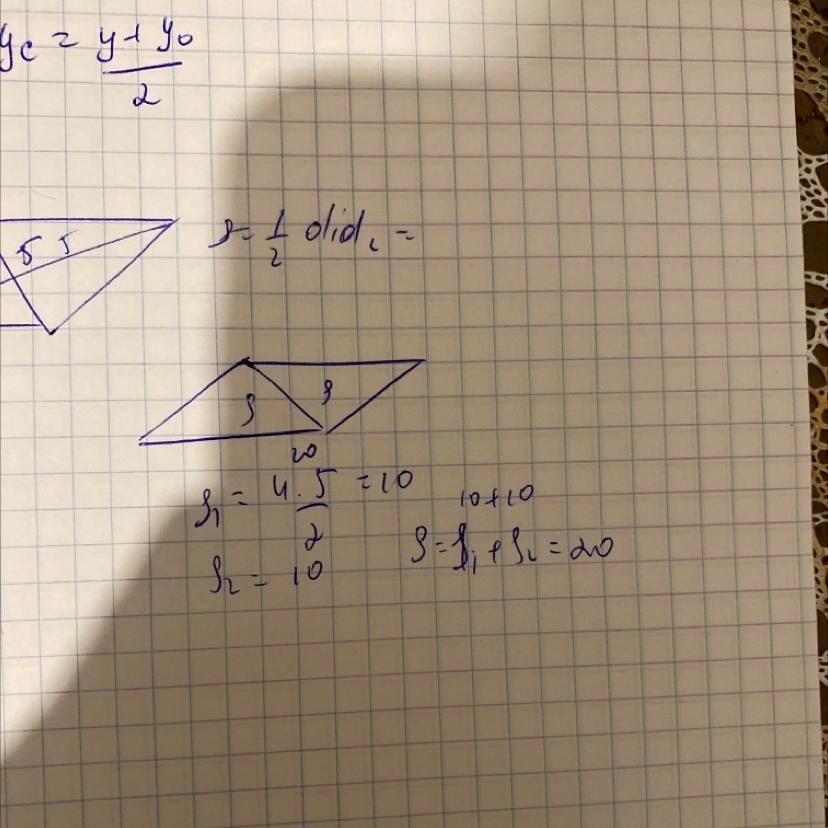 yc = y + y0
2
5 5
S = 1/2 d1d2 =
S S
20
S1 = 4·5/2 = 10
10+10
S2 = 10
S = S1 + S2 = 20